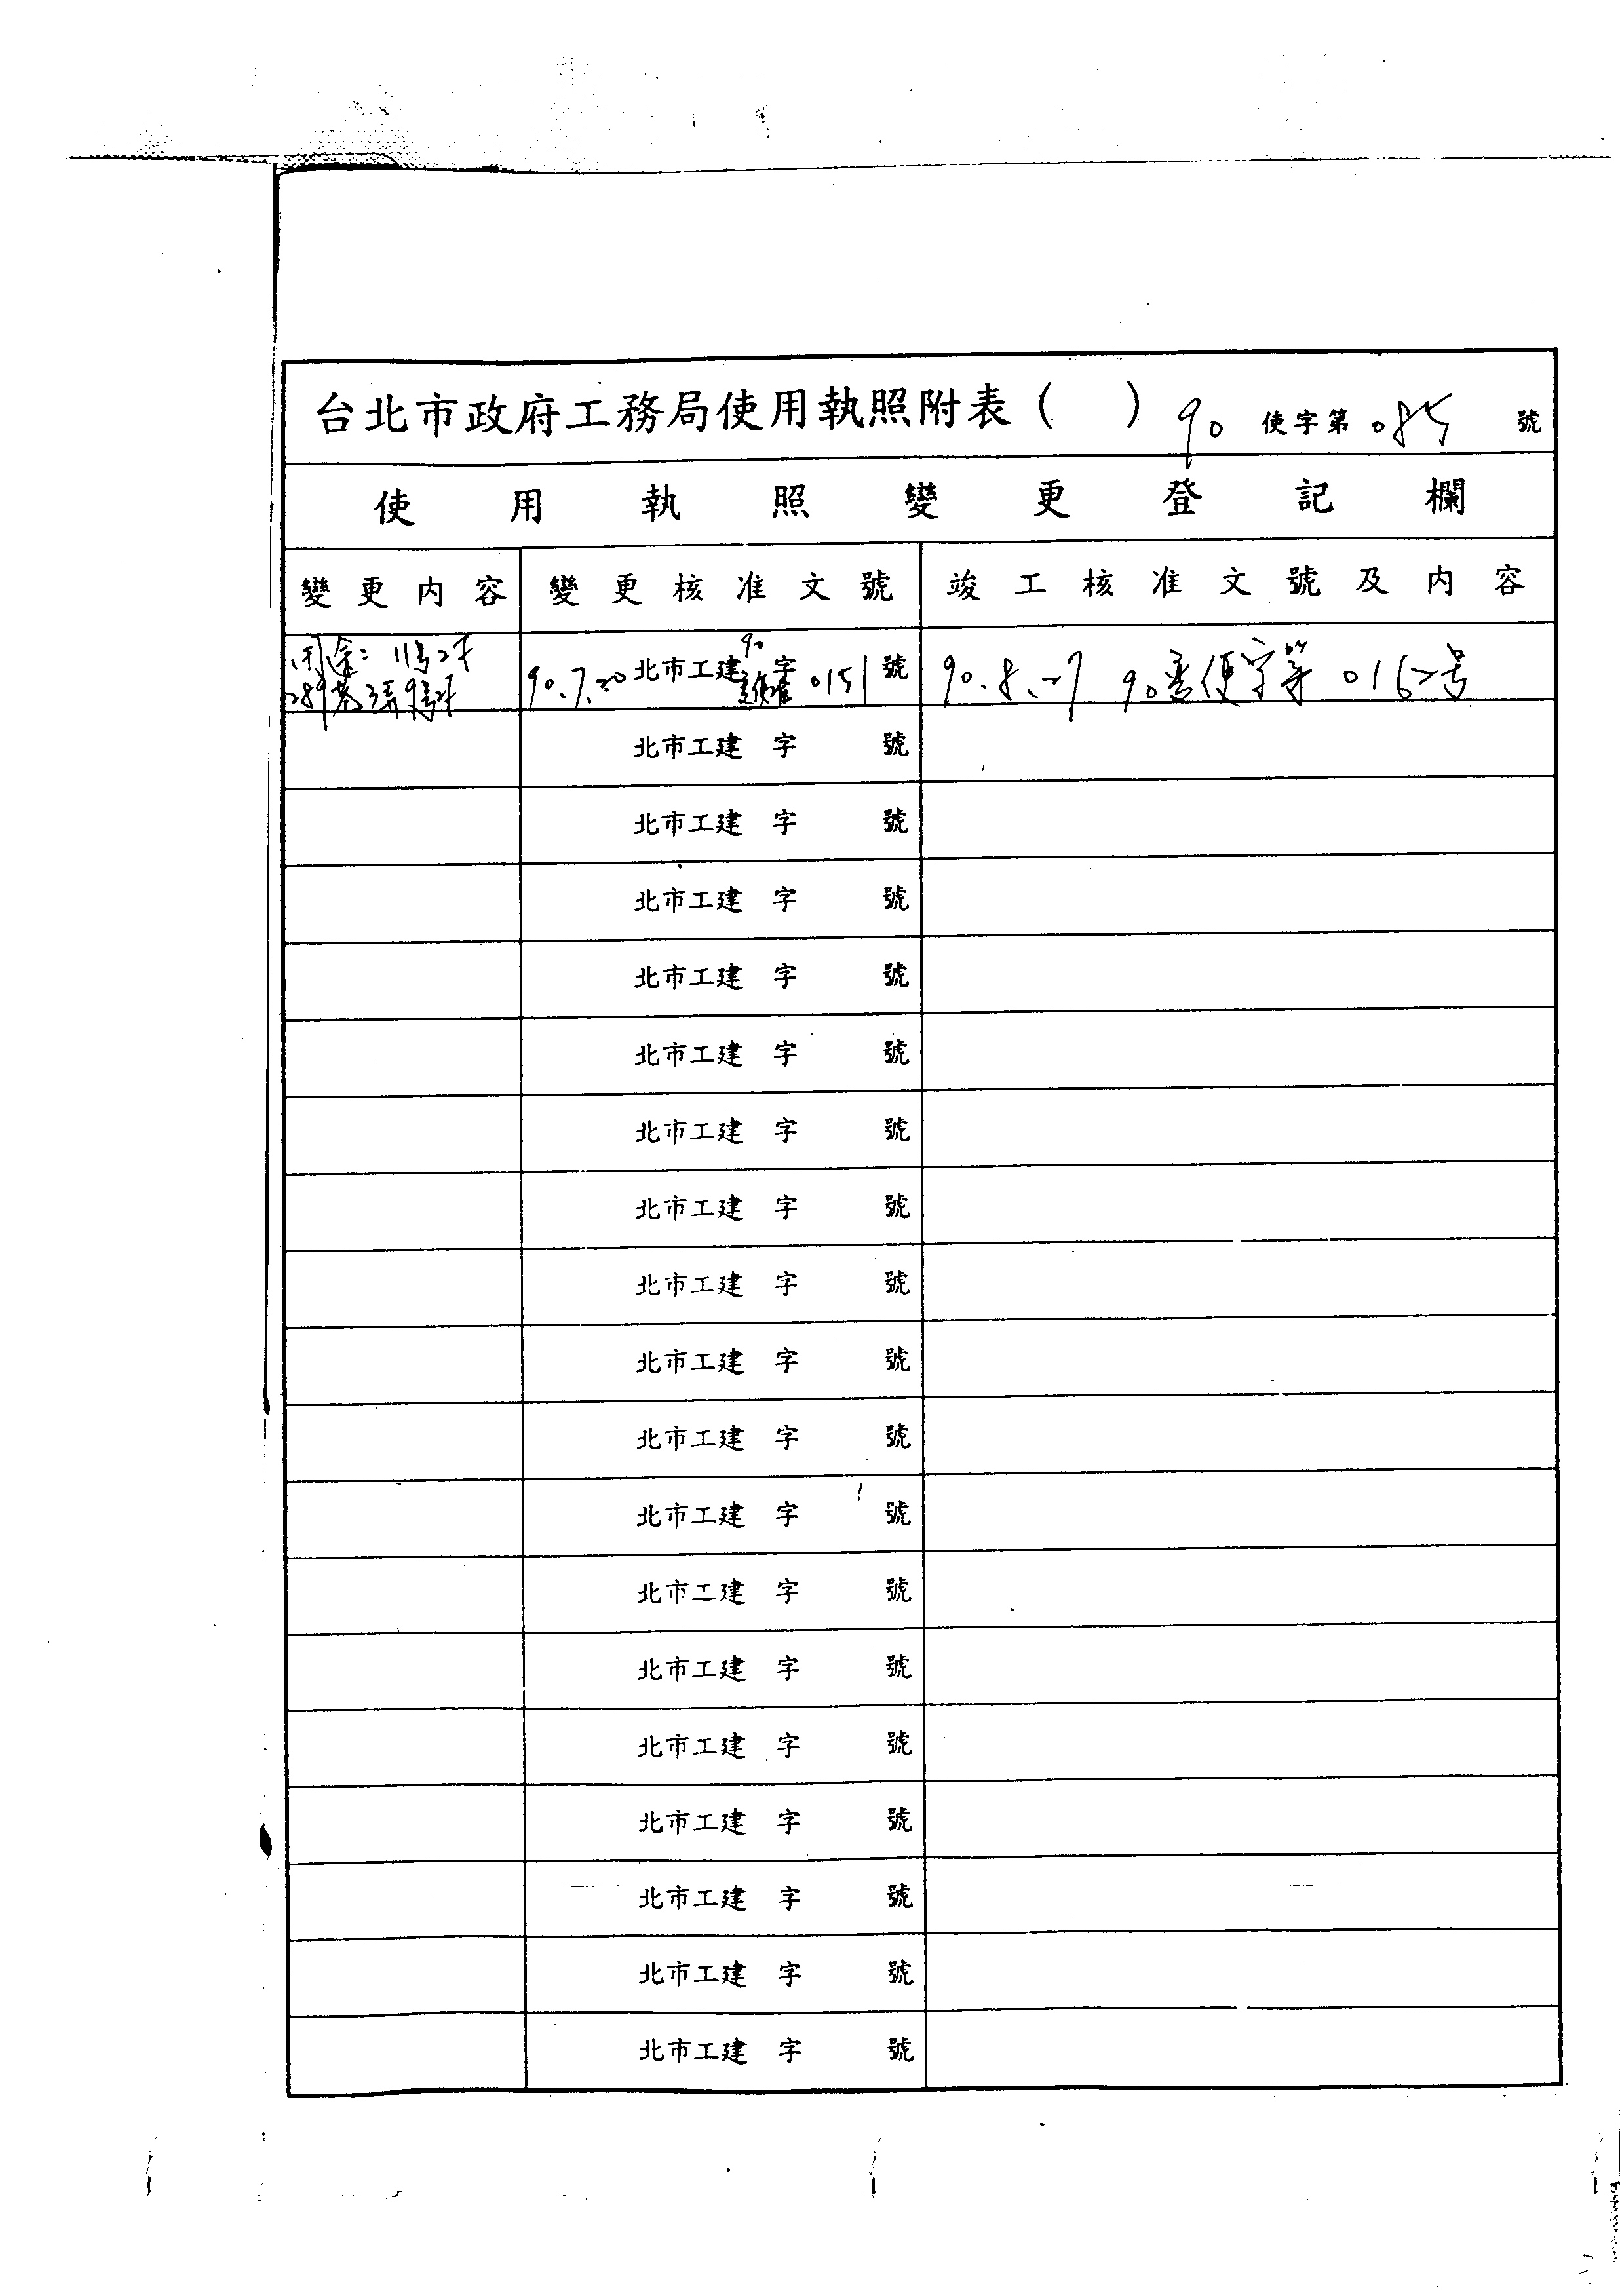 台北市政府工務局使用執照附表（ ） 90 使字第 085 號
使用執照變更登記欄
變更內容 變更核准文號 竣工核准文號及內容
用途：11号2F
289巷3弄9号2F
90.7.20 北市工建 90 字 0151 號 90.8.27 90 使字第 0162号
北市工建 字 號
北市工建 字 號
北市工建 字 號
北市工建 字 號
北市工建 字 號
北市工建 字 號
北市工建 字 號
北市工建 字 號
北市工建 字 號
北市工建 字 號
北市工建 字 號
北市工建 字 號
北市工建 字 號
北市工建 字 號
北市工建 字 號
北市工建 字 號
北市工建 字 號
北市工建 字 號